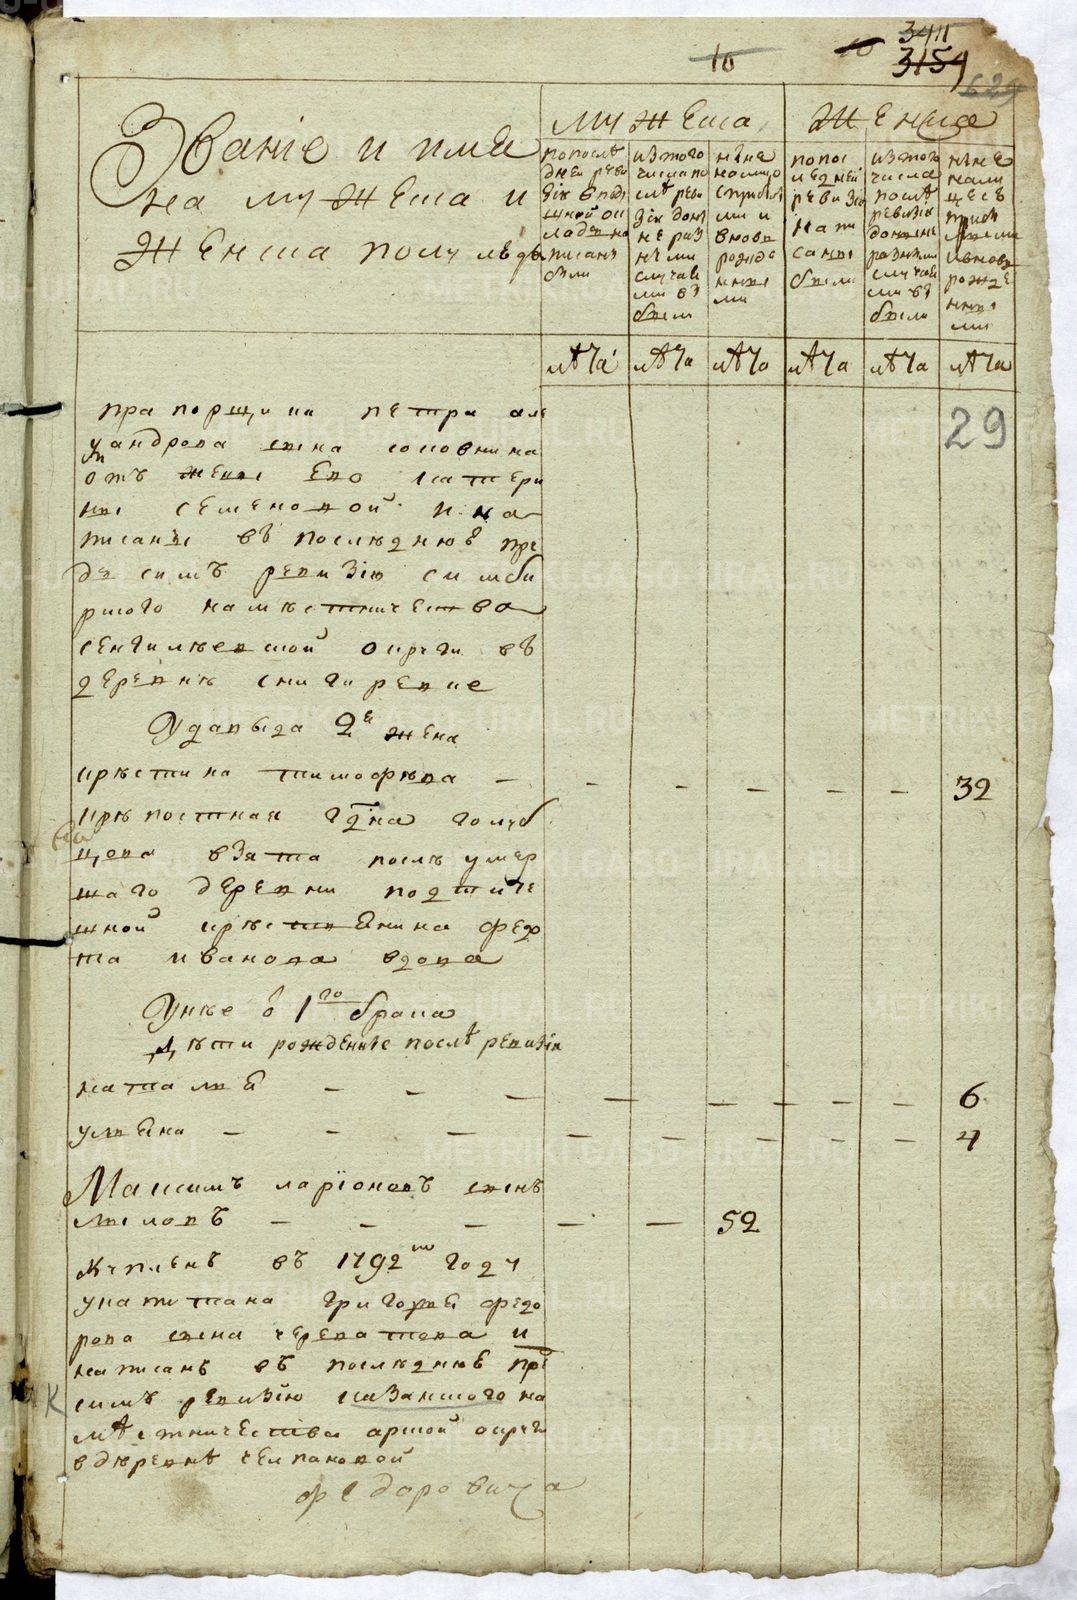 10
10
3411
3154
629
Званiе и имя
на мужеска и
женска полу людя
мужеска
женска
попослѣ
дней реви
зiи вподу
шной ок
ладъ на
писанъ
были
изтого
числа по
слѣ реви
зiи дон
не раз
ными
случая
ми вз
были
нне
налицо
сприбы
ми и
вновь
рожде
нны
ми
попос
ледней
ревизiи
напи
саны
были
изтого
числа
послѣ
ревизiи
донне
разными
случая
ми вз
были
нне
нали
цесъ
приб
лыми
ивновь
рожде
нны
ми
лѣта
лѣта
лѣта
лѣта
лѣта
лѣта
29
прапорщика петра але
ѯандрова сына соловнина
отъ жены его катери
ны семеновой и на
писаны въ последнюю пре
дъ симъ ревизiю симби
рского наместничества
сенгилеевской округи въ
деревне снигиревке
Удавыда 2я жена
крестина тимофеева — 32
крепостная гдна голуб
цова взята после умер
шаго деревни подстепе
шной крестьянина федо
та иванова вдова
Унѣе 1го брака
дѣти рожденные послѣ ревизiи
наталья — 6
ульяна — 4
Максимъ ларiоновъ сынъ
мыловъ — 52
Купленъ въ 1792мъ году
укапитана григорья федо
рова сына череватова и
написанъ въ последнюю пре
симъ ревизiю казанского на
мѣстничества арской округи
вдеревнѣ челпановой
К
федоровича